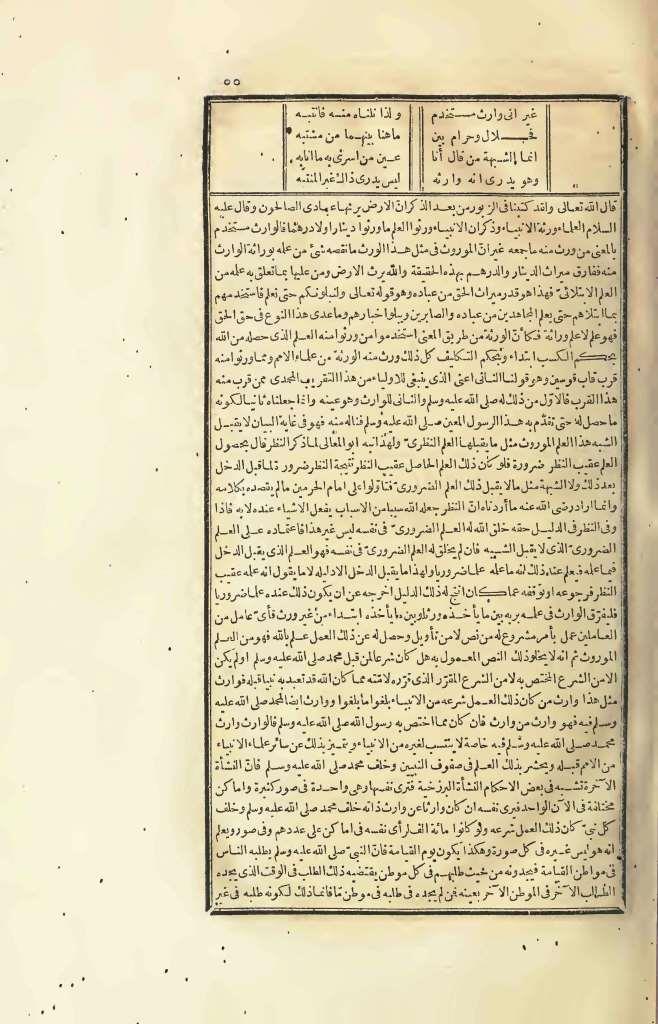 ٥٥
غير أني وارث مستخدم ولذا نلناه منه فانتبه
فحلال وحرام بين ما هنا بينهما من مشتبه
انما الشبهة من قال أنا عين من أسرى به ما انا به
وهو يدري انه وارثه ليس يدري ذاك غير المنتبه
قال الله تعالى ولقد كتبنا في الزبور من بعد الذكر ان الارض يرثها عبادي الصالحون وقال عليه
السلام العلماء ورثة الانبياء وذكر ان الانبياء ورثوا العلم ما ورثوا دينارا ولا درهما فالوارث مستخدم
بالمعنى من ورث منه ما جمعه غير ان الموروث في مثل هذا الورث ما نقصه شئ من علمه بوراثة الوارث
منه ففارق ميراث الدينار والدرهم بهذه الحقيقة والله يرث الارض ومن عليها بما تعلق به علمه من
العلم الابتلائي فهذا هو قدر ميراث الحق من عباده وهو قوله تعالى ولنبلونكم حتى نعلم فاستخدمهم
بما ابتلاهم حتى يعلم المجاهدين من عباده والصابرين ويبلو اخبارهم وما عدى هذا النوع في حق الحق
فهو علم لا علم وراثة فكان الورثة من طريق المعنى استخدموا من ورثوا منه العلم الذي حصله من الله
بحكم الكسب ابتداء وبحكم التكليف كل ذلك ورث منه الورثة من علماء الامم ومما ورثوا منه
قرب قاب قوسين وهو قولنا الثاني اعني الذي ينبغي للاولياء من هذا التقريب المحمدي ممن قرب منه
هذا القرب فالاول من ذلك له صلى الله عليه وسلم والثاني للوارث وهو عينه وانما جعلناه ثانيا لكونه
ما حصل له حتى تقدم به هذا الرسول المعين صلى الله عليه وسلم فناله منه فهو في غاية البيان لا يقبل
الشبه هذا العلم الموروث مثل ما يقبلها العلم النظري ولهذا نبه ابو المعالي لما ذكر النظر قال بحصول
العلم عقيب النظر ضرورة فلو كان ذلك العلم الحاصل عقيب النظر نتيجة النظر ضرورة لما قبل الدخل
بعد ذلك ولا الشبهة مثل ما لا يقبل ذلك العلم الضروري فتاولوا على امام الحرمين ما لم يقصده بكلامه
وانما اراد رضي الله عنه ما أردناه ان النظر جعله الله سببا من الاسباب يفعل الاشياء عنده لا به فاذا
وفى النظر في الدليل حقه خلق الله له العلم الضروري في نفسه ليس غير هذا فاعتماده على العلم
الضروري الذي لا يقبل الشبه فان لم يخلق له العلم الضروري في نفسه فهو العلم الذي يقبل الدخل
فيما علمه فيعلم عند ذلك انه ما علمه علما ضروريا ولهذا ما يقبل الدخل الا دليله لا ما يقول انه علمه عقيب
النظر فرجوعه او توقفه عما كان انتج له ذلك الدليل اخرجه عن ان يكون ذلك عنده علما ضروريا
فليفرق الوارث في علمه بربه بين ما يأخذه ورثا وبين ما يأخذه ابتداء من غير ورث فأى عامل من
العاملين عمل بأمر مشروع له من نص لا من تأويل وحصل له عن ذلك العمل علم بالله فهو من العلم
الموروث ثم انه لا يخلو ذلك النص المعمول به هل كان شرعا لمن قبل محمد صلى الله عليه وسلم او لم يكن
الا من الشرع المختص به لا من الشرع المقرر الذي قرره لامته مما كان الله قد تعبد به نبيا قبله فوارث
مثل هذا وارث من كان ذلك العمل شرعه من الانبياء بلغوا ما بلغوا ووارث ايضا لمحمد صلى الله عليه
وسلم فيه فهو وارث من وارث فان كان مما اختص به رسول الله صلى الله عليه وسلم فالوارث وارث
محمد صلى الله عليه وسلم فيه خاصة لا ينتسب لغيره من الانبياء ويتميز بذلك عن سائر علماء الانبياء
من الامم قبله ويحشر بذلك العلم في صفوف النبيين وخلف محمد صلى الله عليه وسلم فان النشأة
الآخرة تشبه في بعض الاحكام النشأة البرزخية فترى نفسها وهي واحدة في صور كثيرة واماكن
مختلفة في الآن الواحد فيرى نفسه ان كان وارثا عن وارث ذاته خلف محمد صلى الله عليه وسلم وخلف
كل نبي كان ذلك العمل شرعه ولو كانوا مائة الف لرأى نفسه في اماكن على عددهم وفي صور ويعلم
انه هو ليس غيره في كل صورة وهكذا يكون يوم القيامة فان النبي صلى الله عليه وسلم يطلبه الناس
في مواطن القيامة فيجدونه من حيث طلبهم في كل موطن يقتضيه ذلك الطلب في الوقت الذي يجده
الطالب الآخر في الموطن الآخر بعينه فمن لم يجده في طلبه في موطن ما فانما ذلك لكونه طلبه في غير